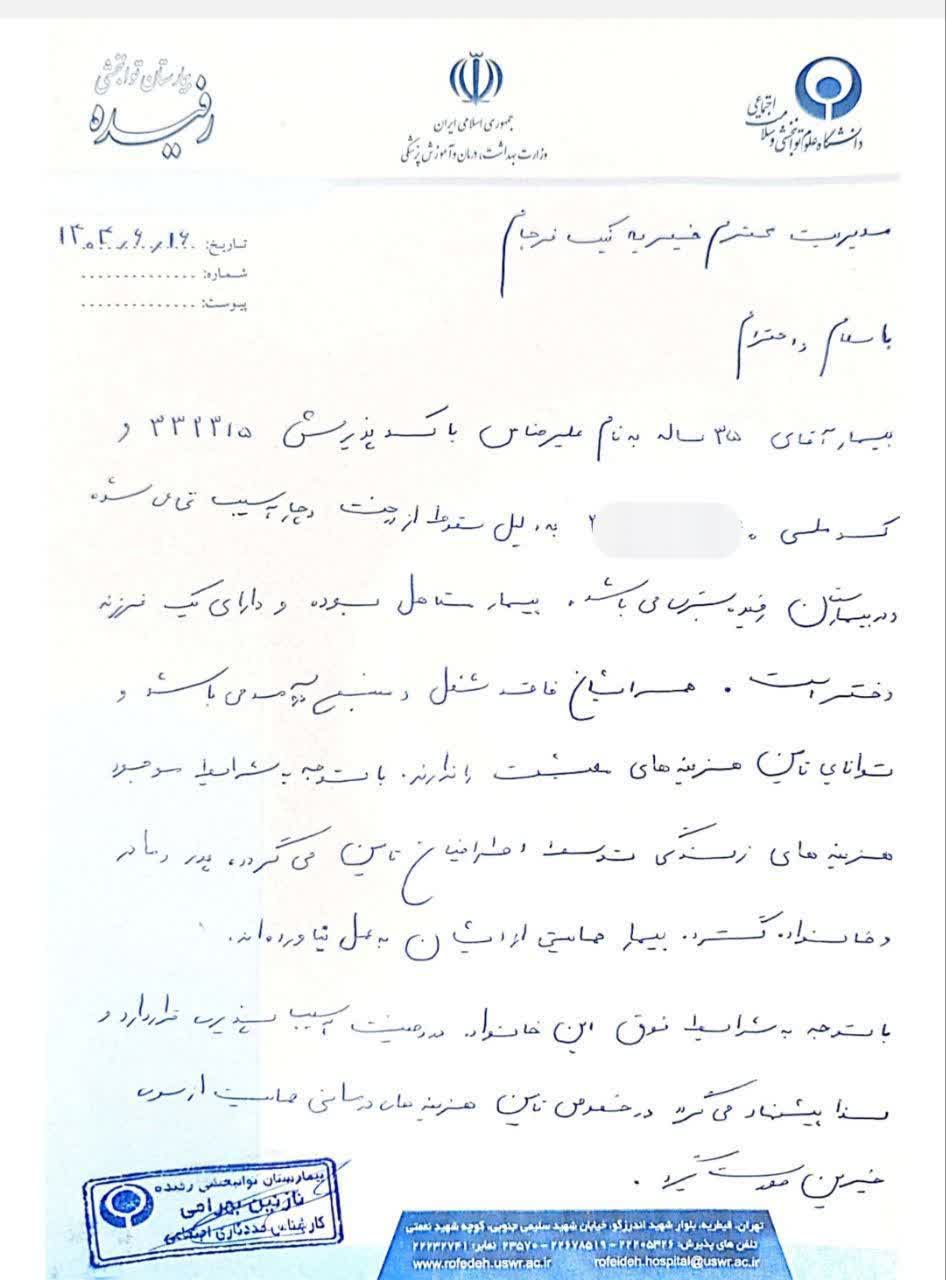 دانشگاه علوم توانبخشی و سلامت اجتماعی
جمهوری اسلامی ایران
وزارت بهداشت، درمان و آموزش پزشکی
بیمارستان توانبخشی
رفیده
تاریخ: ۱۴۰۴/۶/۱۶
شماره: ..............
پیوست: ..............
مدیریت محترم خیریه نیک فرجام
با سلام و احترام
بیمار آقای ۳۵ ساله به نام علیرضا س با کد پذیرش ۳۳۲۳۱۵ و
کد ملی به دلیل سقوط از درخت دچار آسیب نخاعی شده
و در بیمارستان رفیده بستری می باشد. بیمار متاهل بوده و دارای یک فرزند
دختر است. همسر ایشان فاقد شغل و منبع درآمد می باشد و
توانایی تامین هزینه های معیشت را ندارند. با توجه به شرایط موجود
هزینه های زندگی توسط اطرافیان تامین می گردد، پدر و مادر
و خانواده گسترده بیمار حمایتی از ایشان به عمل نیاورده اند.
با توجه به شرایط فوق این خانواده در وضعیت آسیب پذیری قرار دارد و
لذا پیشنهاد می گردد در خصوص تامین هزینه های درمانی حمایت از سوی
خیرین صورت گیرد.
بیمارستان توانبخشی رفیده
نازنین بهرامی
کارشناس مددکاری اجتماعی
تهران، قیطریه، بلوار شهید اندرزگو، خیابان شهید سلیمی جنوبی، کوچه شهید نعمتی
تلفن های پذیرش: ۲۲۲۰۵۳۲۶ - ۲۲۶۷۸۵۱۹ - ۲۳۵۷۰ نمابر: ۲۲۲۳۲۷۴۱
www.rofedeh.uswr.ac.ir rofeideh.hospital@uswr.ac.ir